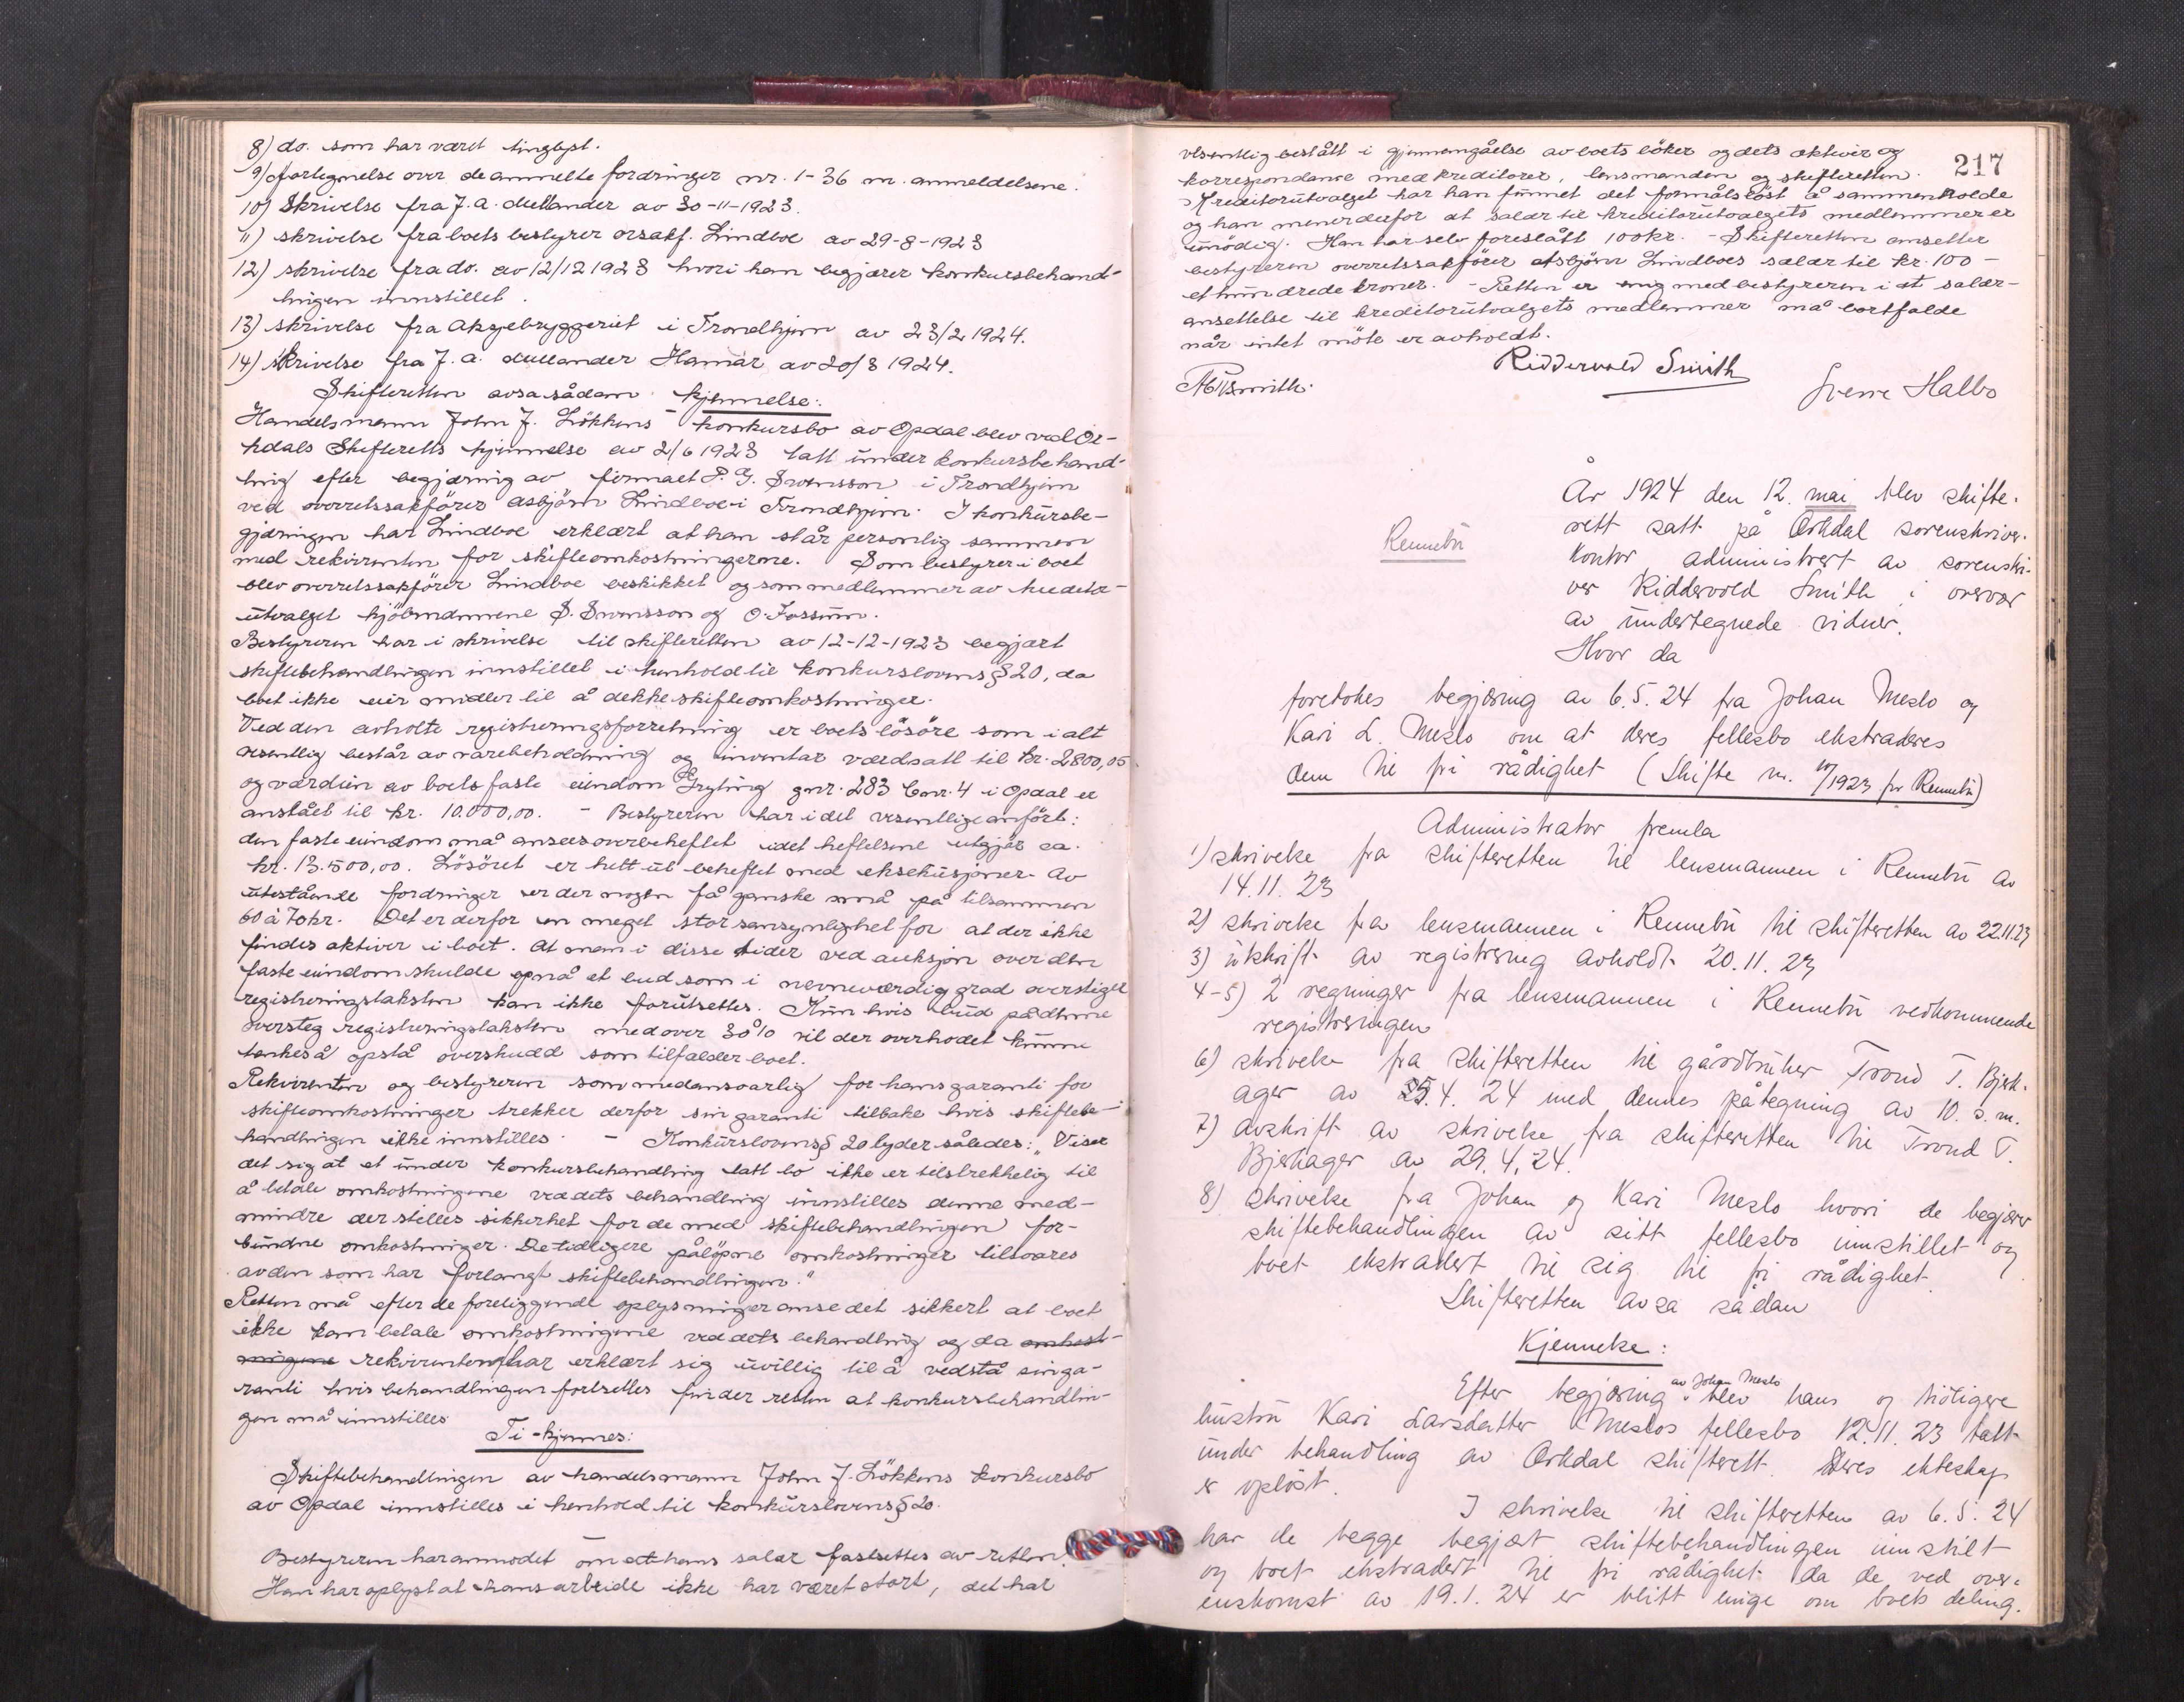 8) do. som har været tinglyst.
9) Fortegnelse over de anmeldte fordringer nr. 1-36 m. anmeldelsene.
10) Skrivelse fra J. A. Mellander av 30-11-1923.
11) skrivelse fra boets bestyrer orsakf. Lindboe av 29-8-1923
12) skrivelse fra do. av 12/12 1923 hvori han begjærer konkursbehand-
lingen innstillet.
13) skrivelse fra Aksjebryggeriet i Trondhjem av 23/2 1924.
14) Skrivelse fra J. A. Mellander Hamar av 20/3 1924.
Skifteretten avsa sådan kjennelse:
Handelsmann John J. Lökkens konkursbo av Opdal blev ved Or-
kdals Skifteretts kjennelse av 2/6 1923 tatt under konkursbehand-
ling efter begjæring av firmaet P. G. Svensson i Trondhjem
ved overretssakförer Asbjörn Lindboe i Trondhjem. I konkursbe-
gjæringen har Lindboe erklært at han står personlig sammen
med rekvirenten for skifteomkostningerne. Som bestyrer i boet
blev overretssakförer Lindboe beskikket og som medlemmer av kreditor-
utvalget kjöbmannene S. Svensson og O. Fossum.
Bestyreren har i skrivelse til skifteretten av 12-12-1923 begjært
skiftebehandlingen innstillet i henhold til konkurslovens § 20, da
boet ikke eier midler til å dekke skifteomkostninger.
Ved den avholte registreringsforretning er boets lösöre som i alt
vesentlig består av varebeholdning og inventar værdsatt til kr. 2800,05
og værdien av boets faste eiendom Gryting gnr. 283 bnr. 4 i Opdal er
anslått til kr. 10.000,00. - Bestyreren har i det vesentlige anfört:
den faste eiendom må ansees overbeheftet idet heftelsene utgjör ca.
kr. 13.500,00. Lösöret er helt ut beheftet med eksekusjoner. Av
utestående fordringer er der nogen få ganske små på tilsammen
60 à 70 kr. Det er derfor en meget stor sansynlighet for at der ikke
findes aktiver i boet. At man i disse tider ved auksjon over den
faste eiendom skulde opnå et bud som i nevneværdig grad overstiger
registreringstaksten kan ikke forutsettes. Kun hvis bud på denne
oversteg registreringstaksten med over 30% vil der overhodet kunne
tenkes å opstå overskudd som tilfalder boet.
Rekvirenten og bestyreren som medansvarlig for hans garanti for
skifteomkostninger trekker derfor sin garanti tilbake hvis skiftebe-
handlingen ikke innstilles. - Konkurslovens § 20 lyder således: "Viser
det sig at et under konkursbehandling tatt bo ikke er tilstrekkelig til
å betale omkostningene ved dets behandling innstilles denne med-
mindre der stilles sikkerhet for de med skiftebehandlingen for-
bundne omkostninger. De tidligere pålöpne omkostninger tilsvares
av den som har forlangt skiftebehandlingen."
Retten må efter de foreliggende oplysninger anse det sikkert at boet
ikke kan betale omkostningene ved dets behandling og da omkost-
ningene rekvirenten har erklært sig uvillig til å vedstå sin ga-
ranti hvis behandlingen fortsettes finder retten at konkursbehandlin-
gen må innstilles
Ti kjennes:
Skiftebehandlingen av handelsmann John J. Lökkens konkursbo
av Opdal innstilles i henhold til konkurslovens § 20.
Bestyreren har anmodet om at hans salær fastsettes av retten.
Han har oplyst at hans arbeide ikke har været stort, det har
217
vesentlig bestått i gjennemgåelse av boets böker og dets aktiver og
korrespondanse med kreditorer, lensmanden og skifteretten.
Kreditorutvalget har han funnet det formålslöst å sammenkalde
og han mener derfor at salær til kreditorutvalgets medlemmer er
unödig. Han har selv foreslått 100 kr. - Skifteretten ansetter
bestyreren overretssakförer Asbjörn Lindboes salær til kr. 100 -
et hundrede kroner. - Retten er enig med bestyreren i at salær-
ansettelse til kreditorutvalgets medlemmer må bortfalde
når intet möte er avholdt.
Riddervold Smith
Sverre Halbo
År 1924 den 12. mai blev skifte-
rett satt på Orkdal sorenskriver-
kontor, administrert av sorenskri-
ver Riddervold Smith i overvær
av undertegnede vidner.
Hvor da
Rennebu
foretokes begjæring av 6.5.24 fra Johan Meslo og
Kari L. Meslo om at deres fellesbo ekstraderes
dem til fri rådighet (Skifte nr. /1923 for Rennebu)
Administrator fremla
1) skrivelse fra skifteretten til lensmannen i Rennebu av
14.11.23
2) skrivelse fra lensmannen i Rennebu til skifteretten av 22.11.23
3) utskrift av registrering avholdt 20.11.23
4-5) 2 regninger fra lensmannen i Rennebu vedkommende
registreringen
6) skrivelse fra skifteretten til gårdbruker Trond T. Bjerk-
ager av 25.4.24 med dennes påtegning av 10. s.m.
7) avskrift av skrivelse fra skifteretten til Trond T.
Bjerkager av 29.4.24.
8) skrivelse fra Johan og Kari Meslo hvori de begjærer
skiftebehandlingen av sitt fellesbo innstillet og
boet ekstradert til sig til fri rådighet.
Skifteretten avsa sådan
Kjennelse:
Efter begjæring av Johan Meslo blev hans og tidligere
hustru Kari Larsdatter Meslos fellesbo 12.11.23 tatt
under behandling av Orkdal skifterett. Deres ekteskap
er oplöst.
I skrivelse til skifteretten av 6.5.24
har de begge begjært skiftebehandlingen innstilt
og boet ekstradert til fri rådighet da de ved over-
enskomst av 19.1.24 er blitt enige om boets deling.